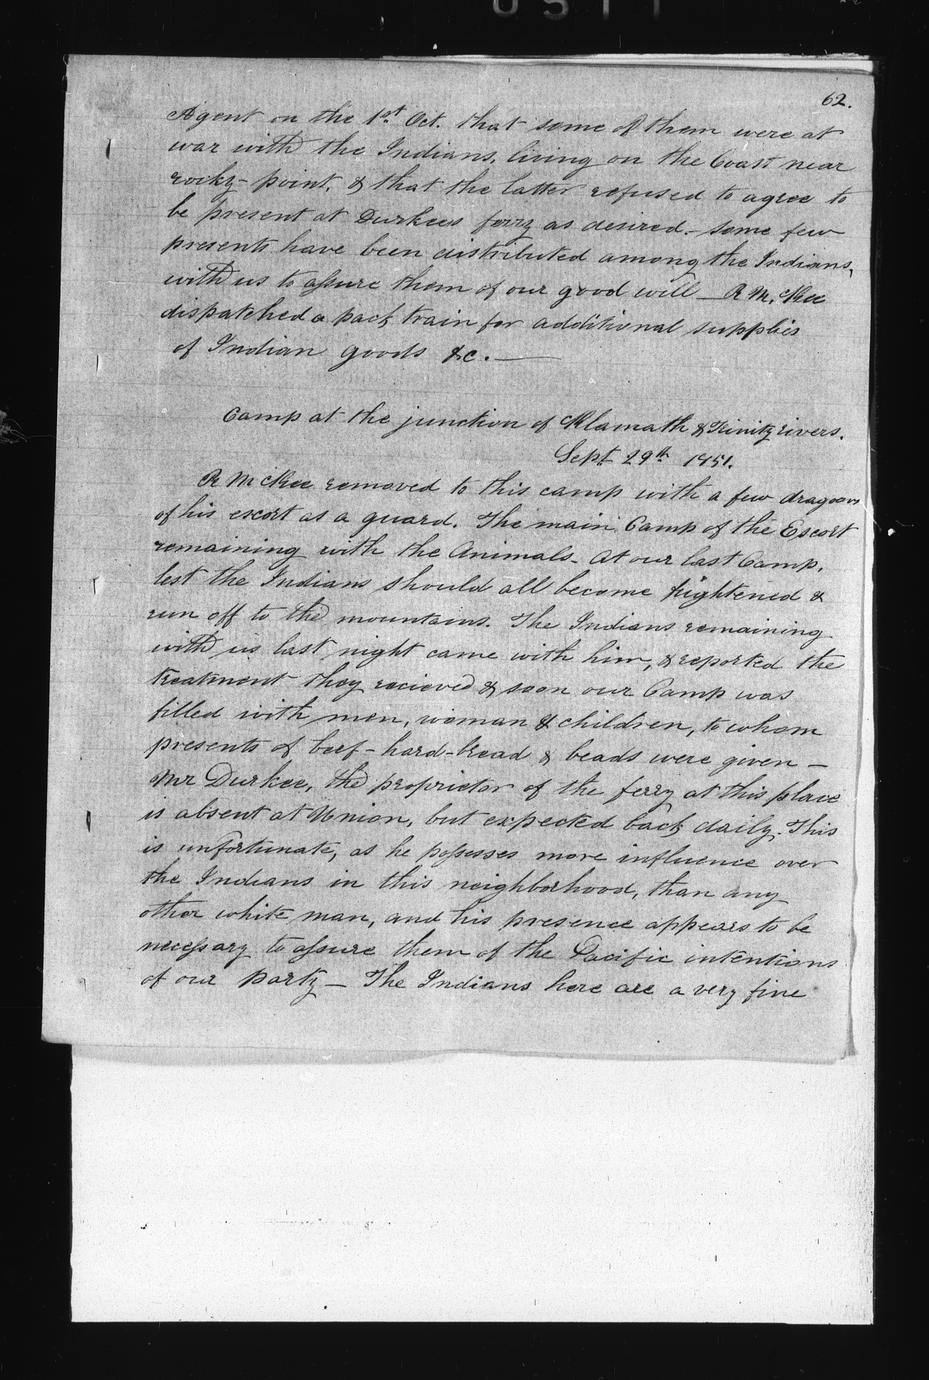 62.
Agent on the 1st Oct. that some of them were at
war with the Indians, living on the Coast near
rocky-point, & that the latter refused to agree to
be present at Durkees ferry as desired - some few
presents have been distributed among the Indians,
with us to assure them of our good will — R M, cKee
dispatched a pack train for additional supplies
of Indian goods &c. —
Camp at the junction of Klamath & Trinity rivers.
Sept 29th 1851.
R McKee removed to this camp with a few dragoons
of his escort as a guard. The main Camp of the Escort
remaining with the Animals. At our last Camp,
lest the Indians should all become frightened &
run off to the mountains. The Indians remaining
with us last night came with him, & reported the
treatment they recieved & soon our Camp was
filled with men, woman & children, to whom
presents of beef - hard-bread & beads were given —
Mr Durkee, the proprietor of the ferry at this place
is absent at Union, but expected back daily. This
is unfortunate, as he possesses more influence over
the Indians in this neighborhood, than any
other white man, and his presence appears to be
necessary to assure them of the Pacific intentions
of our party — The Indians here are a very fine